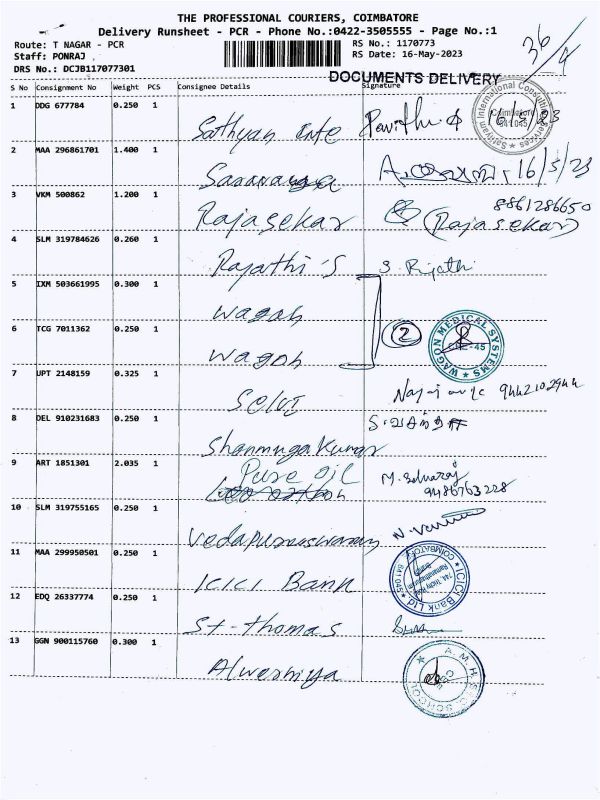 THE PROFESSIONAL COURIERS, COIMBATORE
Delivery Runsheet - PCR - Phone No.:0422-3505555 - Page No.:1
Route: T NAGAR - PCR
RS No.: 1170773
Staff: PONRAJ
RS Date: 16-May-2023
DRS No.: DCJB117077301
DOCUMENTS DELIVERY
36/9
S No Consignment No Weight PCS Consignee Details Signature
1 DDG 677784 0.250 1
Sathyam Inte Pavithi 16/5/23
Sathyam International Consultancy Services
Coimbatore
2 MAA 296861701 1.400 1
Saravanga 16/5/23
3 VKM 500862 1.200 1
8861286650
Rajasekar (Rajasekar)
4 SLM 319784626 0.260 1
Rajathi S S. Rijathi
5 IXM 503661995 0.300 1
Wagah
2
6 TCG 7011362 0.250 1
Wagoh
WAGON MEDICAL SYSTEMS
CBE-45
7 UPT 2148159 0.325 1
Selvi 9442102944
8 DEL 910231683 0.250 1
Shanmugakumar
9 ART 1851301 2.035 1
Pure oil M. Selvaraj
9486763228
10 SLM 319755165 0.250 1
Vedapureeswaran
11 MAA 299950501 0.250 1
ICICI Bank
ICICI Bank Ltd
COIMBATORE
641045
12 EDQ 26337774 0.250 1
St-thomas
13 GGN 900115760 0.300 1
Alwerniya
A. M. H. S. SCHOOL